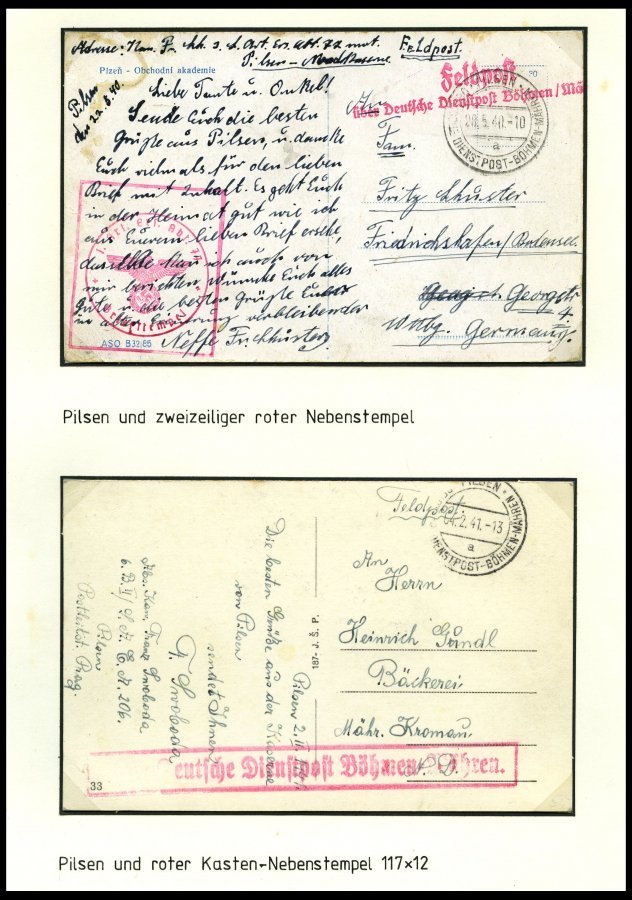 Adresse: Kan. Fr. Schuster
Pilsen
Feldpost.
Plzeň - Obchodní akademie
Feldpost
über Deutsche Dienstpost Böhmen/Mäh
PILSEN
28.5.40.-10
a
DIENSTPOST-BÖHMEN-MÄHREN
Pilsen
Liebe Tante u. Onkel!
Sende Euch die besten
Grüße aus Pilsen, u. danke
Euch vielmals für den lieben
Brief mit Inhalt. Es geht Euch
in der Heimat gut wie ich
aus Eurem lieben Brief ersehe,
dasselbe kann ich auch von
mir berichten. Wünsche Euch alles
Gute u. die besten Grüße Euer
in alter Erinnerung verbleibender
Neffe Fr. Schuster
An
Fam.
Fritz Schuster
Friedrichshafen/Bodensee
Georgstr
4
Wttbg. Germany
ASO B32/85
Pilsen und zweizeiliger roter Nebenstempel
Feldpost.
PILSEN
04.2.41.-13
a
DIENSTPOST-BÖHMEN-MÄHREN
An
Herrn
Heinrich Gundl
Bäckerei
Mähr. Kromau
N. D.
187- J. Š. P.
Pilsen 2. II.
Die besten Grüße aus der Kaserne
von Pilsen
sendet Ihnen
F. Swoboda
Abs. Kan. Franz Swoboda
Pilsen
Postleitst. Prag.
Deutsche Dienstpost Böhmen-Mähren.
33
Pilsen und roter Kasten-Nebenstempel 117×12